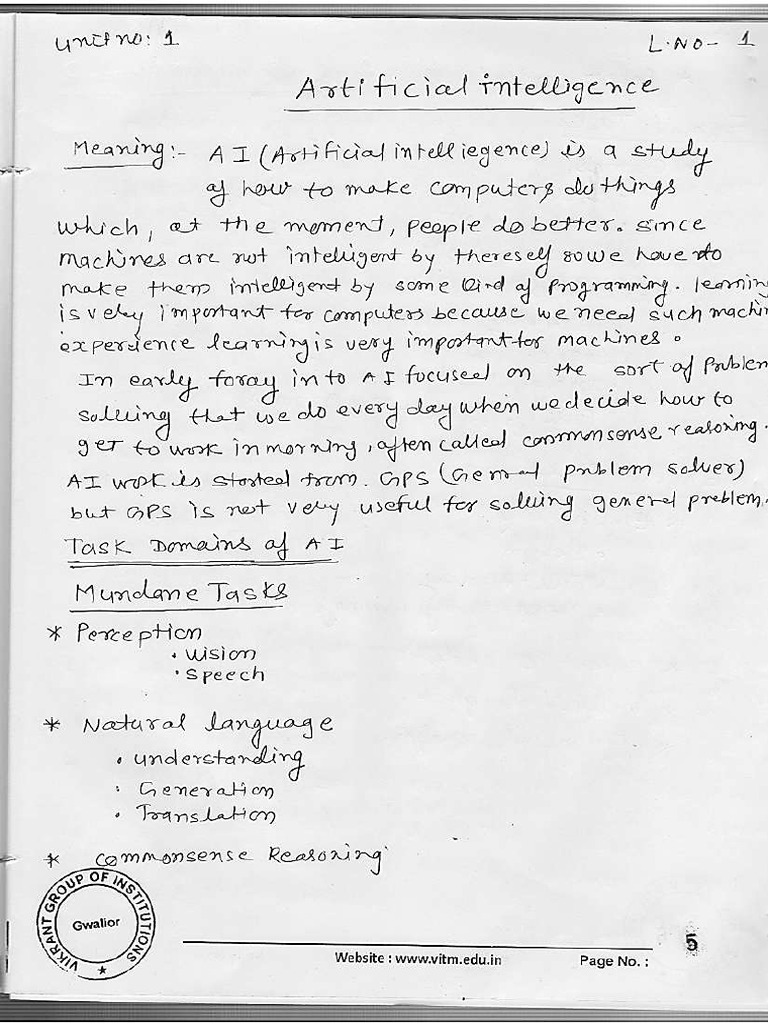 Unit no: 1
L.NO- 1
Artificial intelligence
Meaning:- AI (Artificial intelliegence) is a study
of how to make computers do things
which, at the moment, people do better. since
machines are not intelligent by thereself so we have to
make them intelligent by some kind of programming. learning
is very important for computers because we need such machin
experience learning is very important for machines.
In early foray in to AI focused on the sort of Problem
solving that we do every day when we decide how to
get to work in morning, often called commonsense reasoning.
AI work is started from. GPS (General problem solver)
but GPS is not very useful for solving general problem.
Task Domains of AI
Mundane Tasks
* Perception
• Vision
• Speech
* Natural language
• understanding
• Generation
• Translation
* Commonsense Reasoning
VIKRANT GROUP OF INSTITUTIONS
Gwalior
5
Website : www.vitm.edu.in
Page No. :